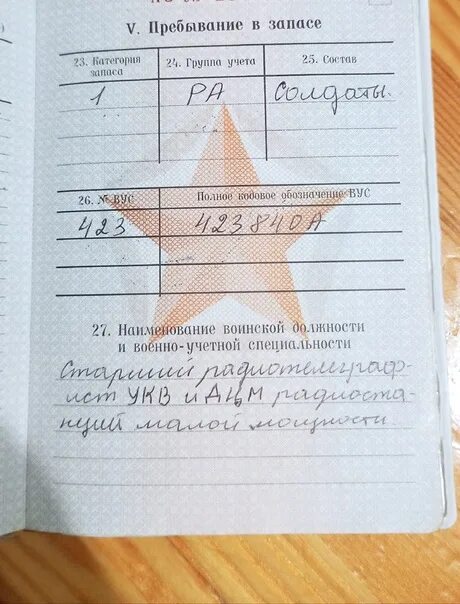 V. Пребывание в запасе
23. Категория запаса 24. Группа учета 25. Состав
1 РА Солдаты
26. № ВУС Полное кодовое обозначение ВУС
423 423840А
27. Наименование воинской должности
и военно-учетной специальности
Старший радиотелеграф-
ист УКВ и ДЦМ радиоста-
нций малой мощности.